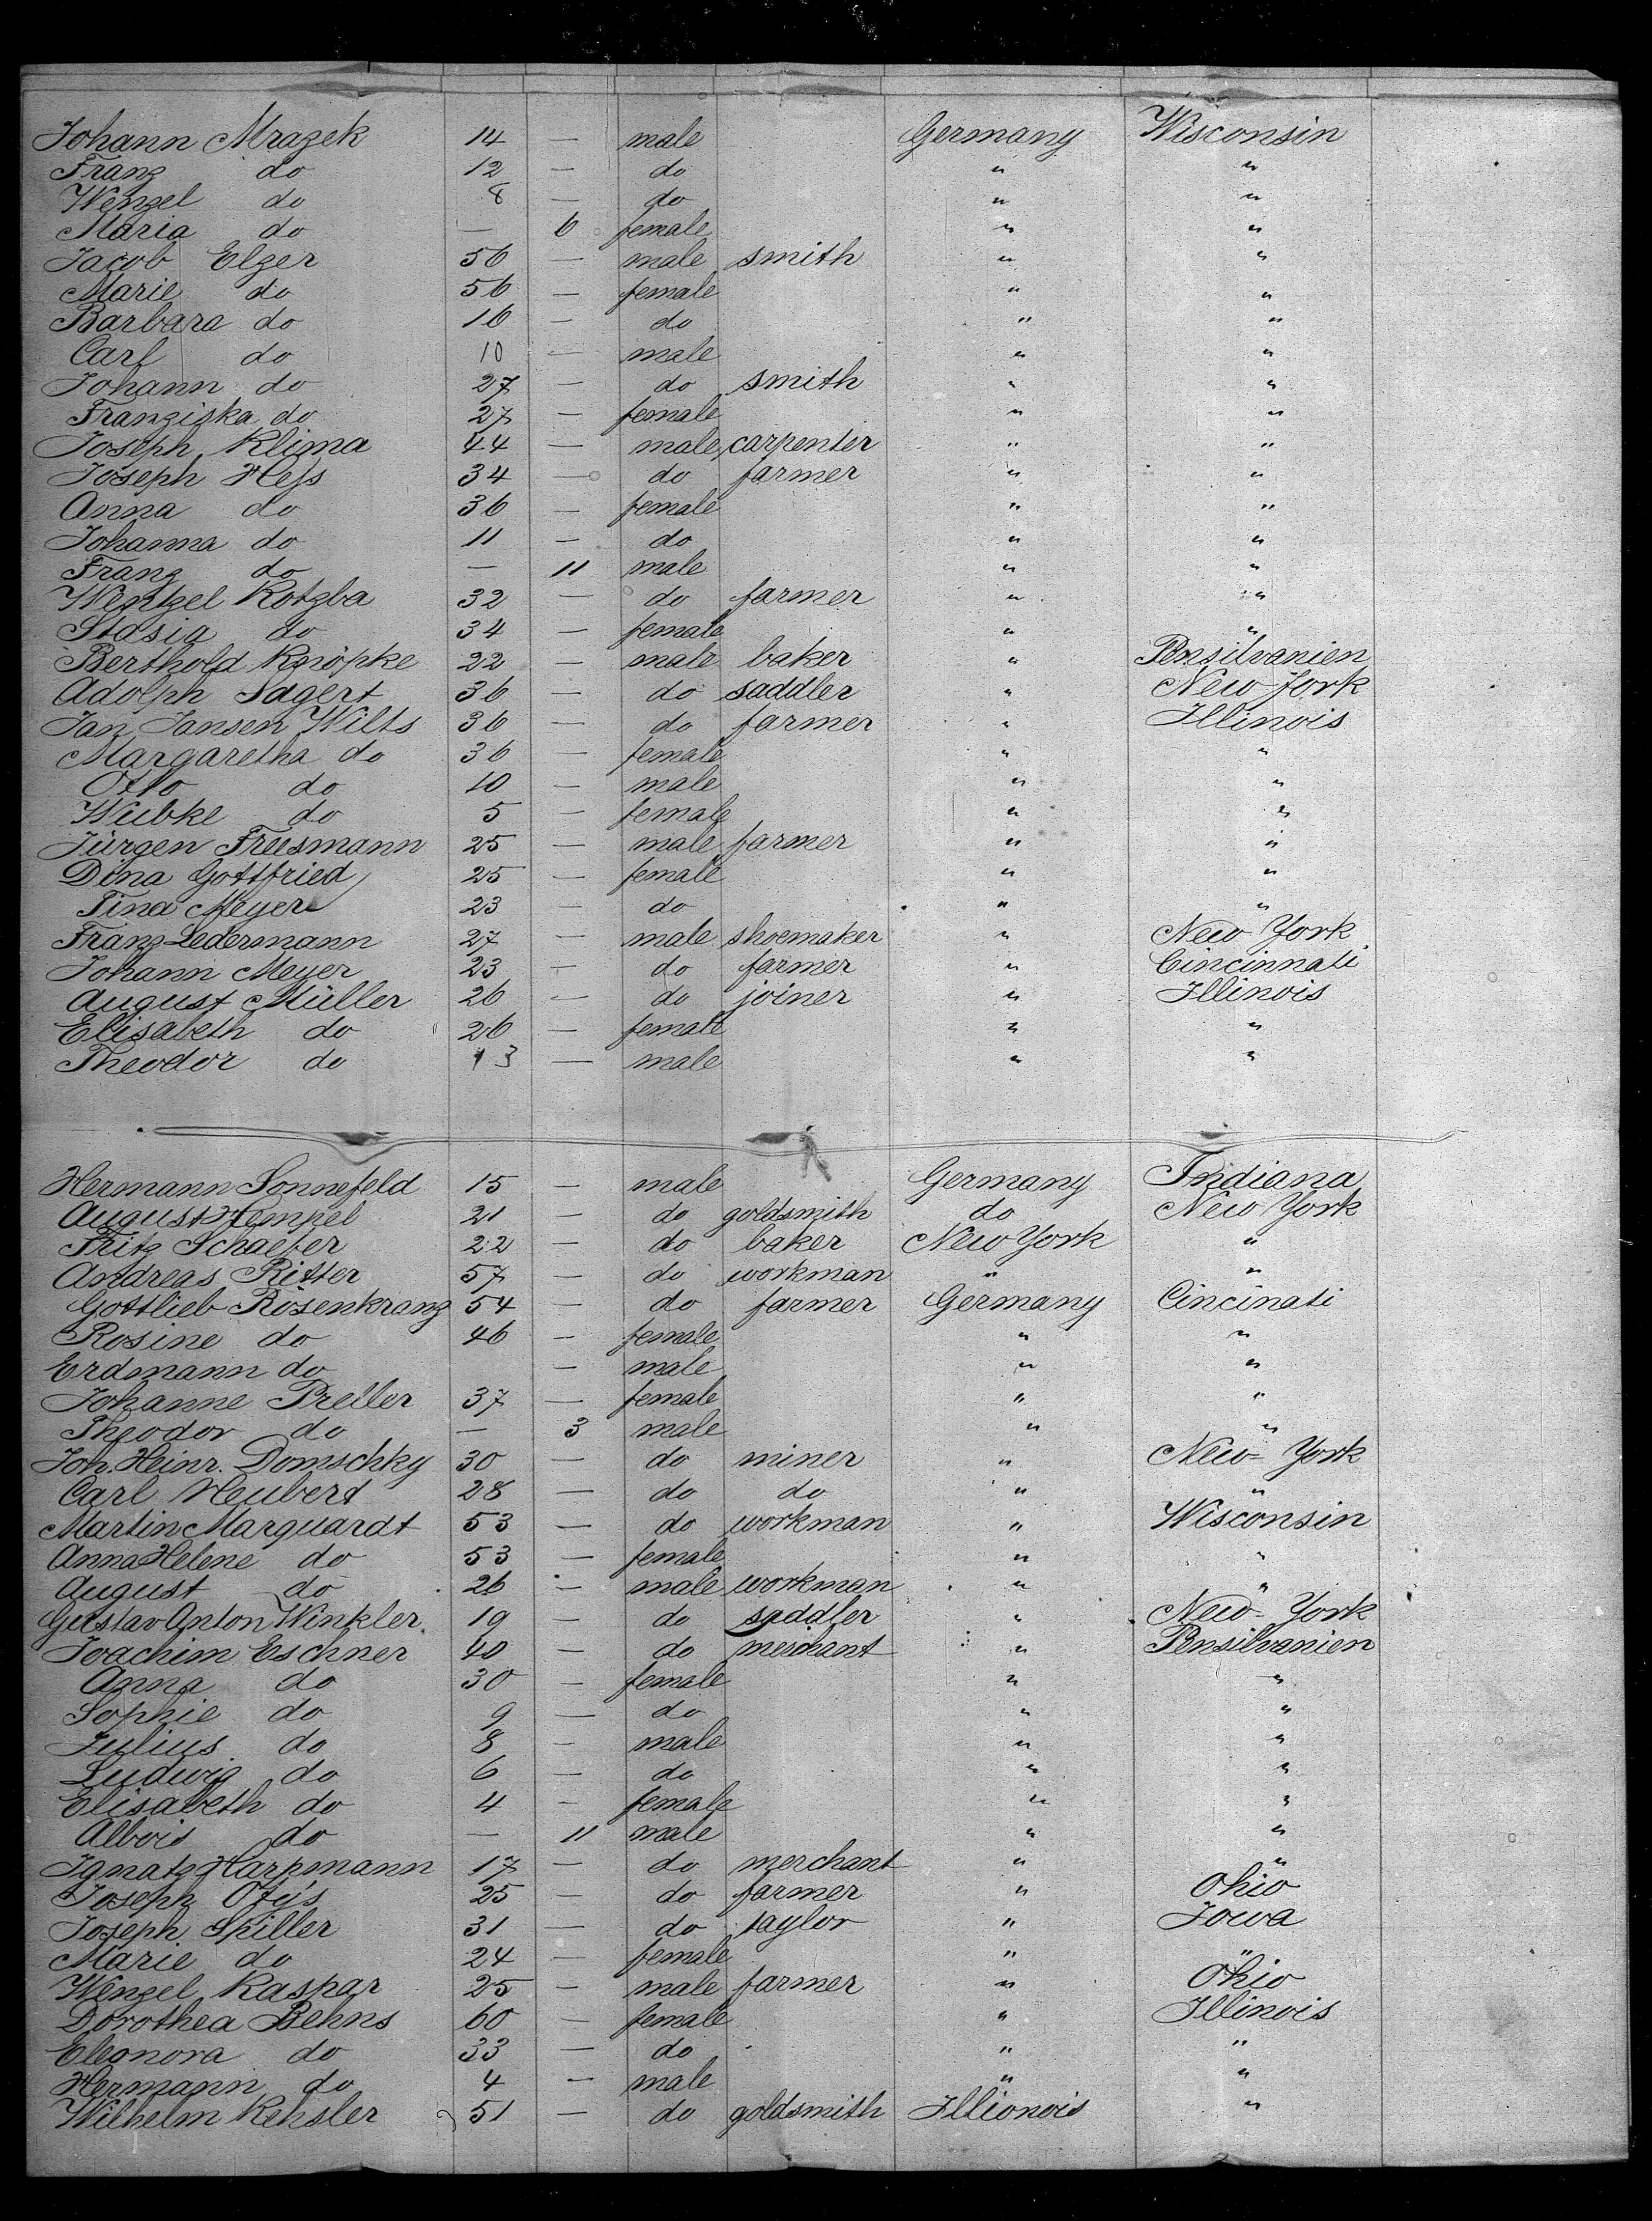 Johann Mrazek 14 — male Germany Wisconsin
Franz do 12 — do " "
Wenzel do 8 — do " "
Maria do — 6 female " "
Jacob Elger 56 — male smith " "
Marie do 56 — female " "
Barbara do 16 — do " "
Carl do 10 — male " "
Johann do 27 — do smith " "
Franziska do 27 — female " "
Joseph Klima 44 — male carpenter " "
Joseph Hess 34 — do farmer " "
Anna do 36 — female " "
Johanna do 11 — do " "
Franz do — 11 male " "
Wentzel Kotzba 32 — do farmer " "
Stasia do 34 — female " "
Berthold Knöpke 22 — male baker " Pensilvanien
Adolph Sagert 36 — do saddler " New York
Jan Jansen Wilts 36 — do farmer " Illinois
Margaretha do 36 — female " "
Otto do 10 — male " "
Wubke do 5 — female " "
Jürgen Freesmann 25 — male farmer " "
Dina Gottfried 25 — female " "
Tina Meyer 23 — do " "
Franz Ledermann 27 — male shoemaker " New York
Johann Meyer 23 — do farmer " Cincinnati
August Müller 26 — do joiner " Illinois
Elisabeth do 26 — female " "
Theodor do 13 — male " "
Hermann Sonnefeld 15 — male Germany Indiana
August Hempel 21 — do goldsmith do New York
Fritz Schaefer 22 — do baker New York "
Andreas Ritter 57 — do workman " "
Gottlieb Rosenkranz 54 — do farmer Germany Cincinati
Rosine do 46 — female " "
Erdmann do — male " "
Johanne Preller 37 — female " "
Theodor do — 3 male " "
Joh. Heinr. Domschky 30 — do miner " New-York
Carl Neubert 28 — do do " "
Martin Marquardt 53 — do workman " Wisconsin
Anna Helene do 53 — female " "
August do 26 — male workman " "
Gustav Anton Winkler 19 — do saddler " New-York
Joachim Eschner 40 — do merchant " Pensilvanien
Anna do 30 — female " "
Sophie do 9 — do " "
Julius do 8 — male " "
Ludwig do 6 — do " "
Elisabeth do 4 — female " "
Albois do — 11 male " "
Ignatz Harpmann 17 — do merchant " "
Joseph 25 — do farmer " Ohio
Joseph Spiller 31 — do taylor " Iowa
Marie do 24 — female " "
Wenzel Kaspar 25 — male farmer " Ohio
Dorothea Behns 60 — female " Illinois
Eleonora do 33 — do " "
Hermann do 4 — male " "
Wilhelm Kehsler 51 — do goldsmith Illionois "